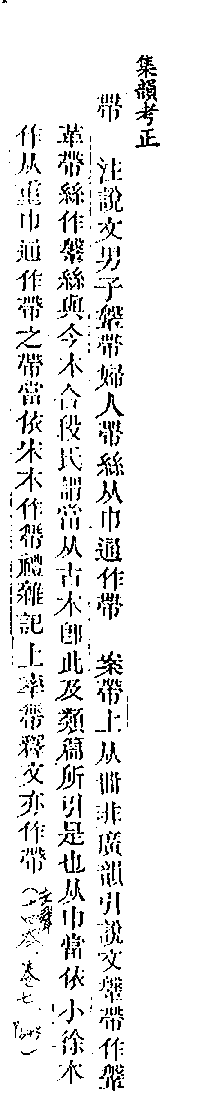 集韻考正
帶　注說文男子鞶帶婦人帶絲从巾通作帶　案帶上从卌非廣韻引說文鞶帶作鞶
革帶絲作鞶絲與今本合段氏謂當从古本卽此及類篇所引是也从巾當依小徐本
作从重巾通作帶之帶當依宋本作㡜禮雜記上率帶釋文亦作帶（去聲十四泰、卷七、